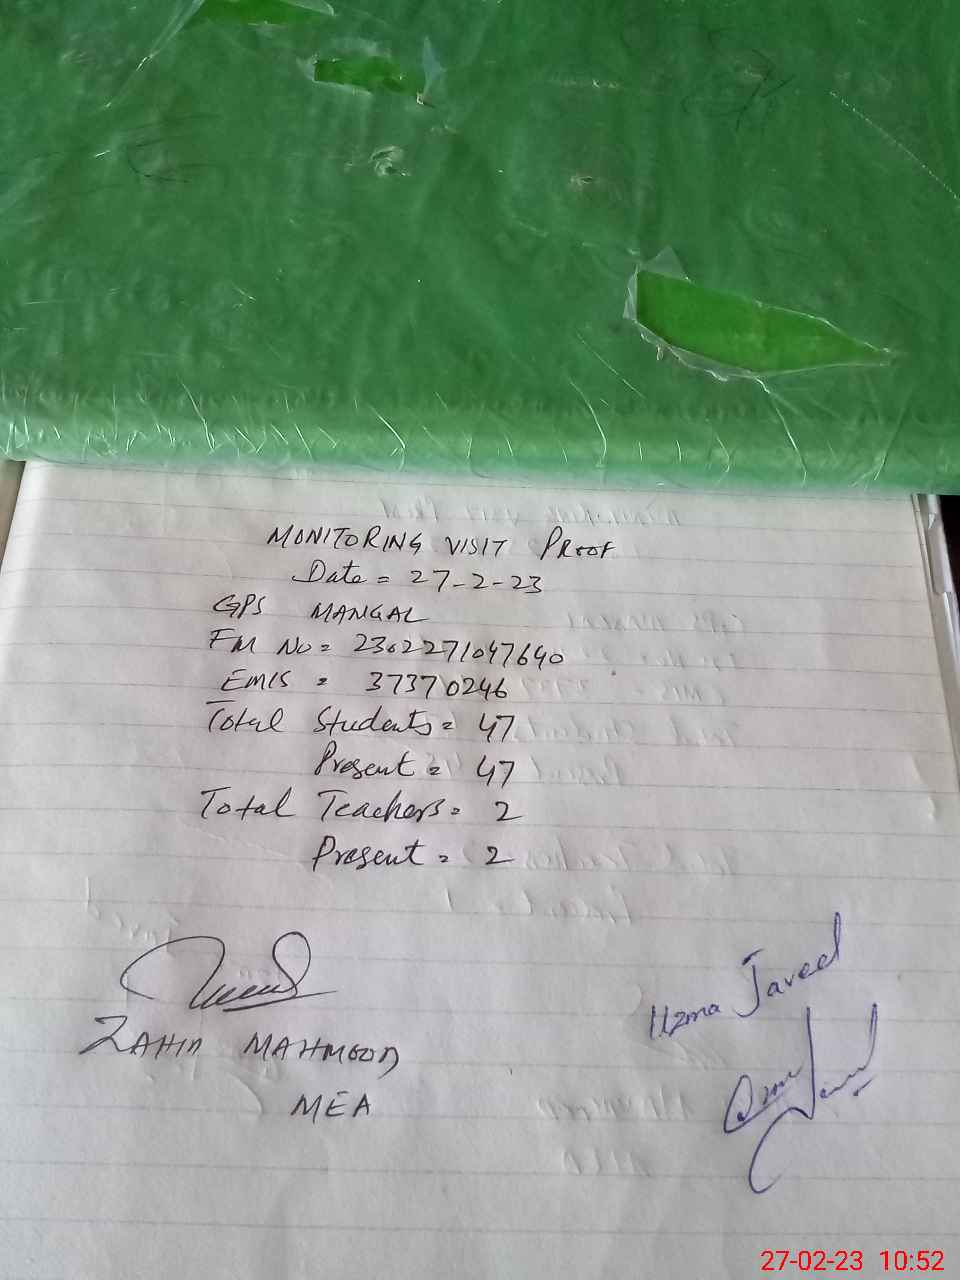 MONITORING VISIT PROOF
Date = 27-2-23
GPS MANGAL
FM No = 2302271047640
EMIS = 37370246
Total Students = 47
Present = 47
Total Teachers = 2
Present = 2
Uzma Javeed
ZAHID MAHMOOD
MEA
27-02-23 10:52